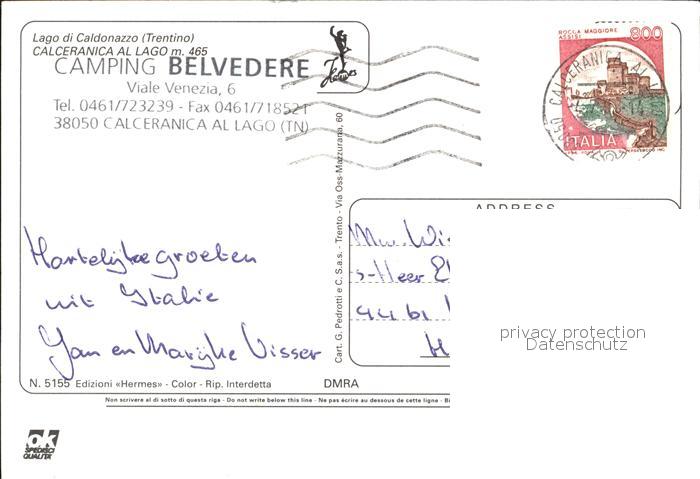 Lago di Caldonazzo (Trentino)
CALCERANICA AL LAGO m. 465
CAMPING BELVEDERE
Viale Venezia, 6
Tel. 0461/723239 - Fax 0461/718521
38050 CALCERANICA AL LAGO (TN)
Hermes
ROCCA MAGGIORE
ASSISI
800
ITALIA
CALCERANICA AL
Cart. G. Pedrotti e C. S.a.s. - Trento - Via Oss-Mazzurana, 60
ADDRESS
Hartelijke groeten
uit Italie
Jan en Marijke Visser
s-Heer
privacy protection
Datenschutz
N. 5155 Edizioni «Hermes» - Color - Rip. Interdetta
DMRA
Non scrivere al di sotto di questa riga - Do not write below this line - Ne pas écrire au dessous de cette ligne -
ok
SPEDISCI
QUALITA'